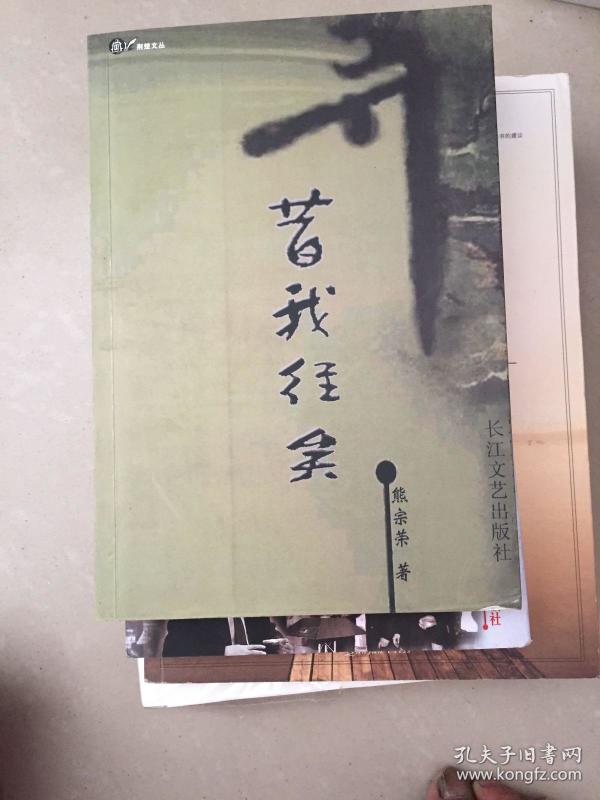 荆楚文丛
昔我往矣
熊宗荣 著
长江文艺出版社
的建议
社
孔夫子旧书网
www.kongfz.com